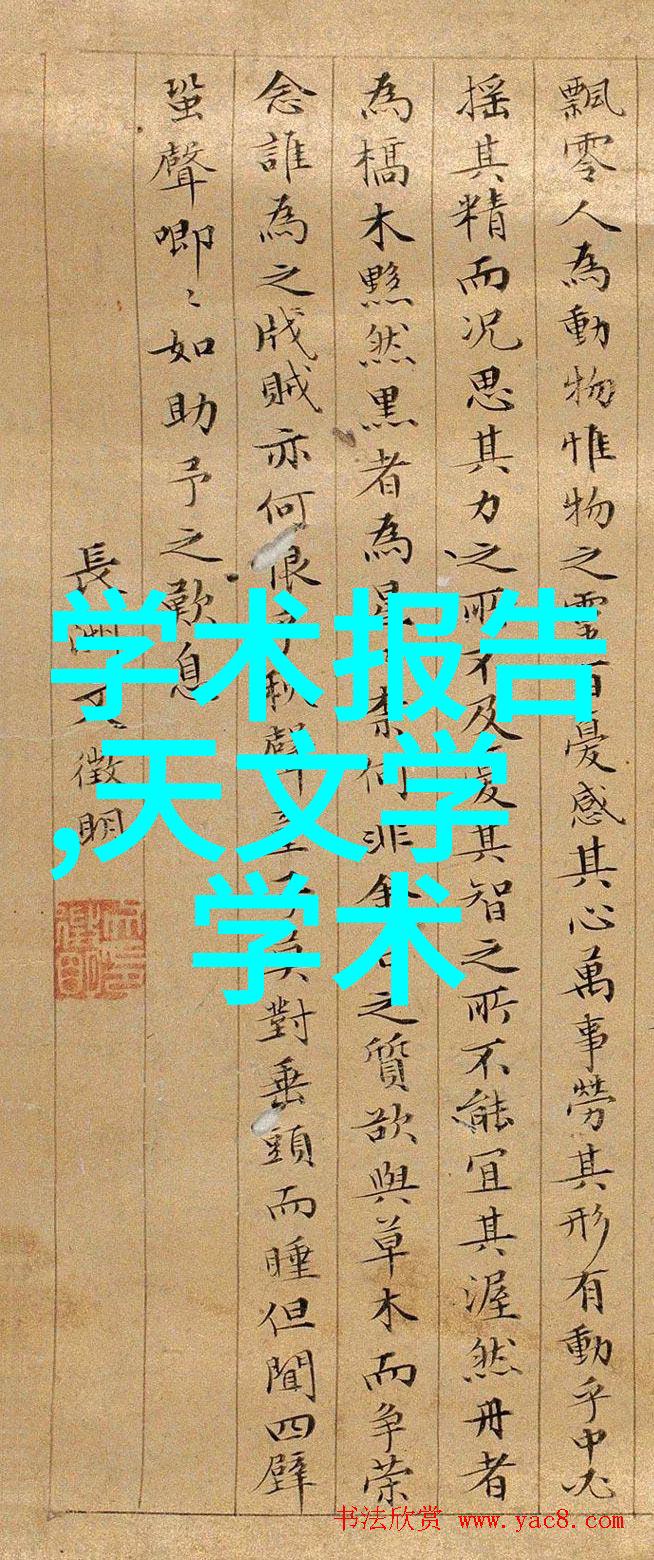 飄零人為動物惟物之靈百憂感其心萬事勞其形有動乎中必
搖其精而況思其力之所不及憂其智之所不能宜其渥然丹者
為槁木黟然黑者為星奈何非金石之質欲與草木而爭榮
念誰為之戕賊亦何恨乎秋聲童子莫對垂頭而睡但聞四壁
蛩聲唧〻如助予之歎息
長洲文徵明
学术报告
,天文学
学术
书法欣赏 www.yac8.com